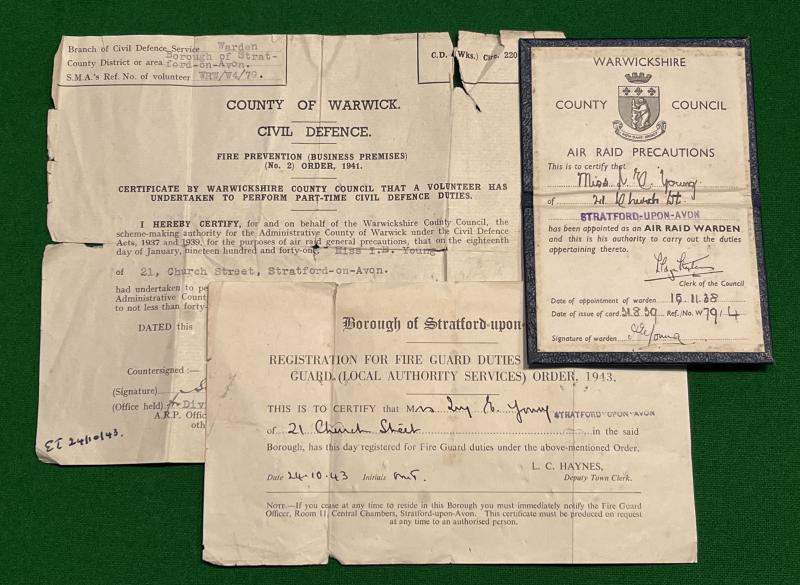 Branch of Civil Defence Service Warden
County District or area Borough of Strat-
ford-on-Avon.
S.M.A.'s Ref. No. of volunteer WRW/W4/79.
C.D. (Wks.) Circ. 220
COUNTY OF WARWICK.
CIVIL DEFENCE.
FIRE PREVENTION (BUSINESS PREMISES)
(No. 2) ORDER, 1941.
CERTIFICATE BY WARWICKSHIRE COUNTY COUNCIL THAT A VOLUNTEER HAS
UNDERTAKEN TO PERFORM PART-TIME CIVIL DEFENCE DUTIES.
I HEREBY CERTIFY, for and on behalf of the Warwickshire County Council, the
scheme-making authority for the Administrative County of Warwick under the Civil Defence
Acts, 1937 and 1939, for the purposes of air raid general precautions, that on the eighteenth
day of January, nineteen hundred and forty-one Miss I.E. Young
of 21, Church Street, Stratford-on-Avon.
had undertaken to pe
Administrative Count
to not less than forty-
DATED this
Countersigned :—
(Signature)
(Office held) Divi
A.R.P. Offic
oth
EI 24/10/43.
WARWICKSHIRE
COUNTY COUNCIL
AIR RAID PRECAUTIONS
This is to certify that
Miss I. E. Young
of 21 Church St.
STRATFORD-UPON-AVON
has been appointed as an AIR RAID WARDEN
and this is his authority to carry out the duties
appertaining thereto.
Clerk of the Council
Date of appointment of warden 15.11.38
Date of issue of card 31.8.39 Ref./No. W79/4
Signature of warden I E Young
Borough of Stratford-upon-
REGISTRATION FOR FIRE GUARD DUTIES
GUARD (LOCAL AUTHORITY SERVICES) ORDER, 1943.
THIS IS TO CERTIFY that Miss Ivy E. Young STRATFORD-UPON-AVON
of 21 Church Street in the said
Borough, has this day registered for Fire Guard duties under the above-mentioned Order.
L. C. HAYNES,
Date 24-10-43 Initials Deputy Town Clerk.
NOTE.—If you cease at any time to reside in this Borough you must immediately notify the Fire Guard
Officer, Room 11, Central Chambers, Stratford-upon-Avon. This certificate must be produced on request
at any time to an authorised person.